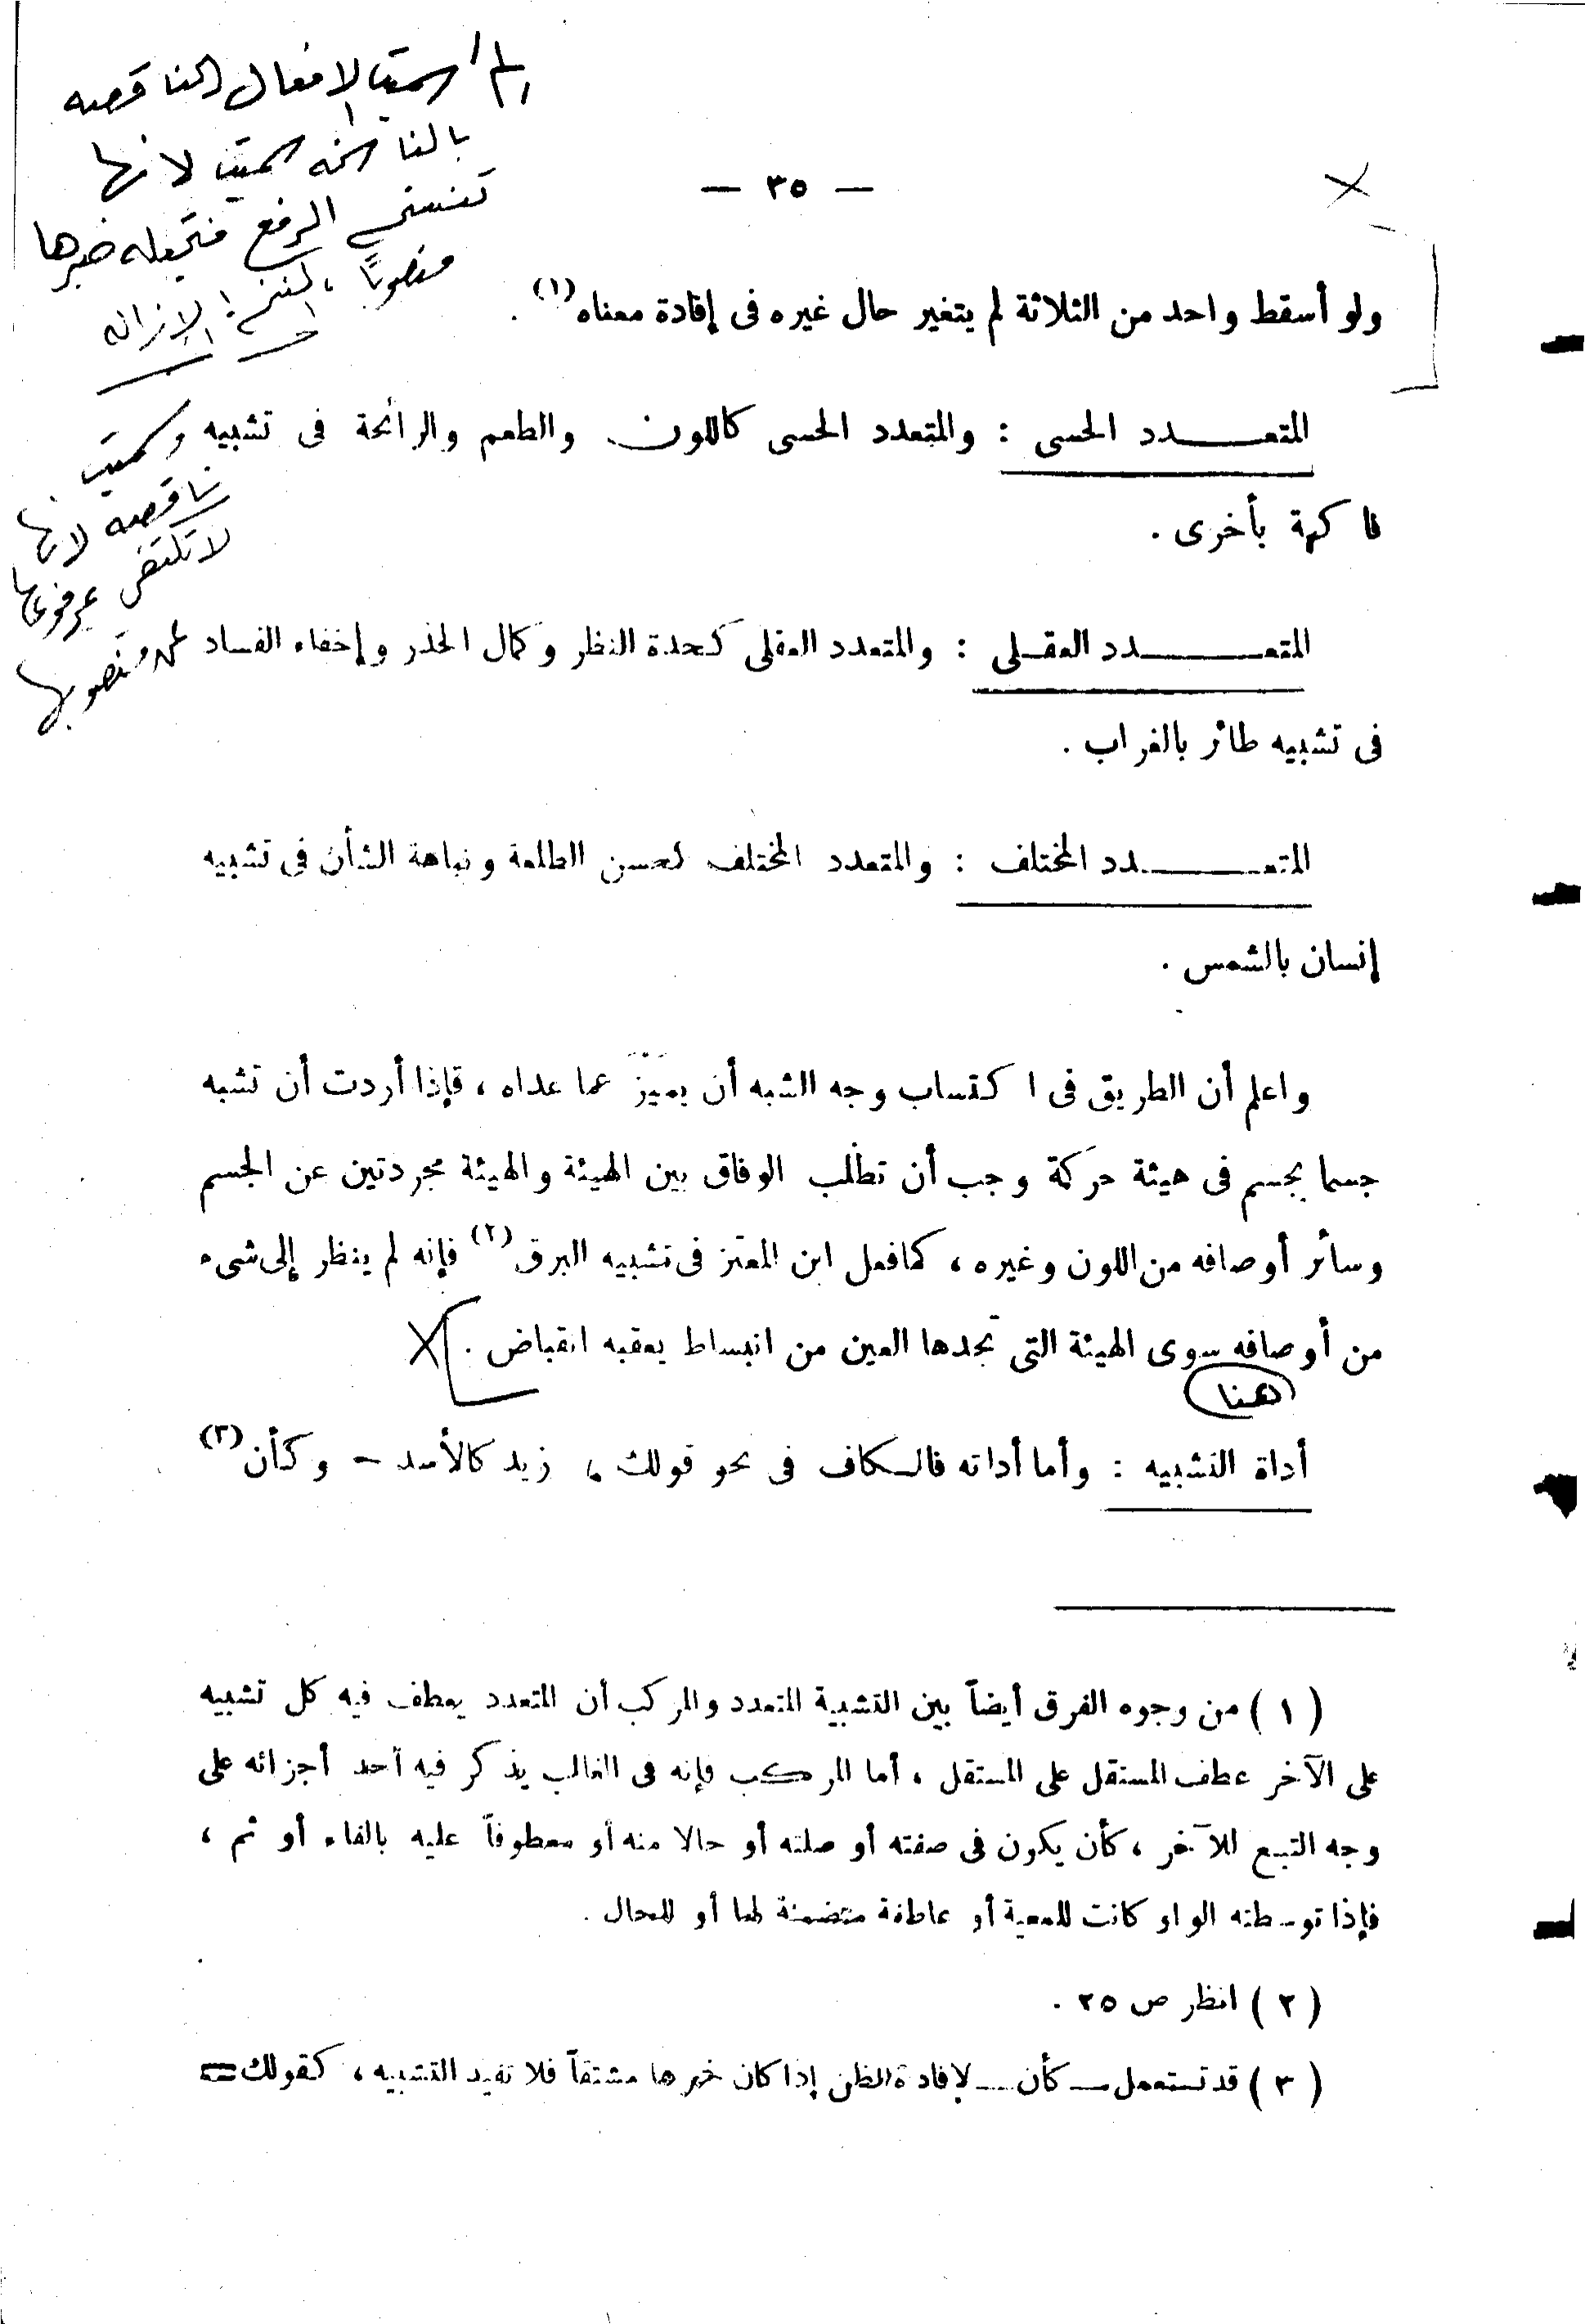 سميت الافعال الناقصه
بالناسخه سميت لانها
تنسخ الرفع فتجعله خبرها
منصوبًا ، النسخ : الإزاله
— ٣٥ —
ولو أسقط واحد من الثلاثة لم يتغير حال غيره فى إفادة معناه (١) .
المتعـــدد الحسى : والمتعدد الحسى كاللون والطعم والرائحة فى تشبيه
فاكهة بأخرى .
وسميت
ناقصه لانها
لا تكتفى بمرفوعها
منصوبها
المتعـــدد العقـلى : والمتعدد العقلى كحدة النظر وكمال الحذر وإخفاء الفساد
فى تشبيه طائر بالغراب .
المتعـــدد المختلف : والمتعدد المختلف كحسن الطلعة ونباهة الشأن فى تشبيه
إنسان بالشمس .
واعلم أن الطريق فى اكتساب وجه الشبه أن يميّزَ عما عداه ، فإذا أردت أن تشبه
جسما بجسم فى هيئة حركة وجب أن تطلب الوفاق بين الهيئة والهيئة مجردتين عن الجسم
وسائر أوصافه من اللون وغيره ، كما فعل ابن المعتز فى تشبيه البرق (٢) فإنه لم ينظر إلى شىء
من أوصافه سوى الهيئة التى تجدها العين من انبساط يعقبه انقباض .
هنا
أداة التشبيه : وأما أداته فالكاف فى نحو قولك ، زيد كالأسد — وكأن (٣)
( ١ ) من وجوه الفرق أيضاً بين التشبية المتعدد والمركب أن المتعدد يعطف فيه كل تشبيه
على الآخر عطف المستقل على المستقل ، أما المركب فإنه فى الغالب يذكر فيه أحد أجزائه على
وجه التبع للآخر ، كأن يكون فى صفته أو صلته أو حالا منه أو معطوفاً عليه بالفاء أو ثم ،
فإذا توسطته الواو كانت للمعية أو عاطفة متضمنة لها أو للحال .
( ٢ ) انظر ص ٢٥ .
( ٣ ) قد تستعمل — كأن — لإفادة الظن إذا كان خبرها مشتقاً فلا تفيد التشبيه ، كقولك =